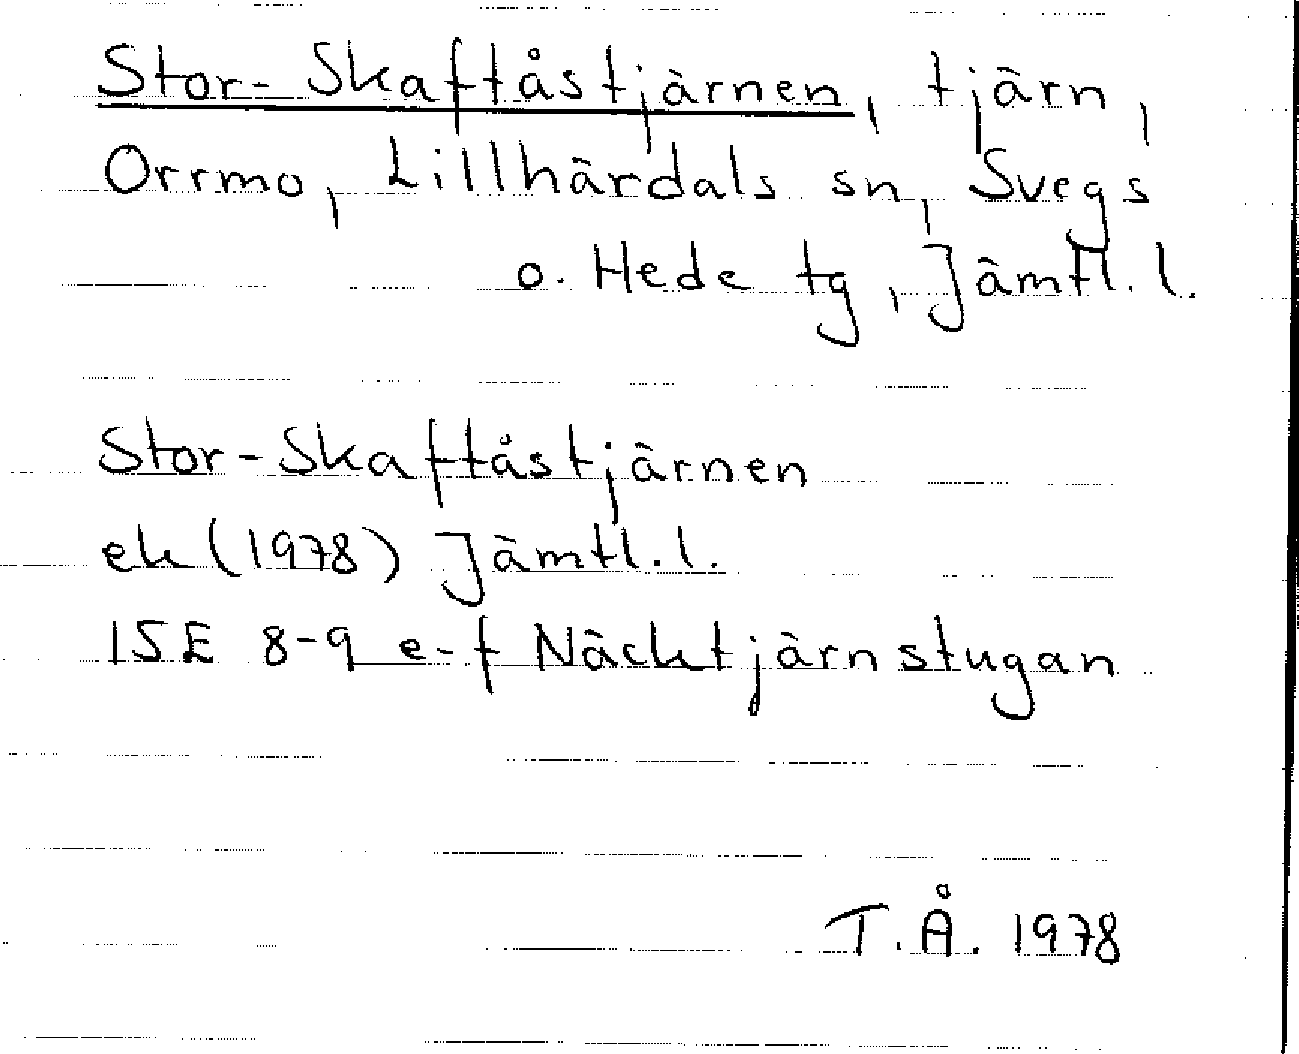 Stor-Skaftåstjärnen, tjärn,
Orrmo, Lillhärdals sn, Svegs
o. Hede tg, Jämtl. l.
Stor-Skaftåstjärnen
ek (1978) Jämtl. l.
15E 8-9 e-f Näcktjärnstugan
T.Å. 1978